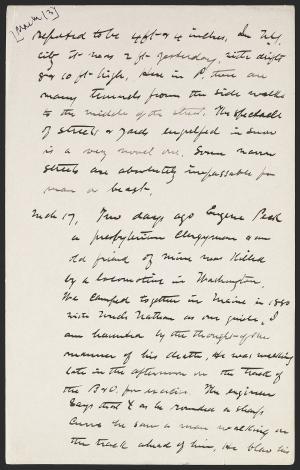 [March 13]
reputed to be 4 ft - 4 inches. In N.Y.
city it was 2 ft yesterday, with drifts
8 & 10 ft high, here in P. there are
many tunnels from the side walks
to the middle of the street. The spectacle
of streets & yards engulfed in snow
is a very novel one. Some narrow
streets are absolutely impassable for
man or beast.
Mch 17, Two days ago Eugene Peck
a presbyterian Clergyman & an
old friend of mine was killed
by a locomotive in Washington.
We camped together in Maine in 1880
with Uncle Nathan as our guide. I
am haunted by the thought of the
manner of his death, He was walking
late in the afternoon on the track of
the B & O. for exercise. The engineer
says that as he rounded a sharp
curve he saw a man walking on
the track ahead of him, He blew his